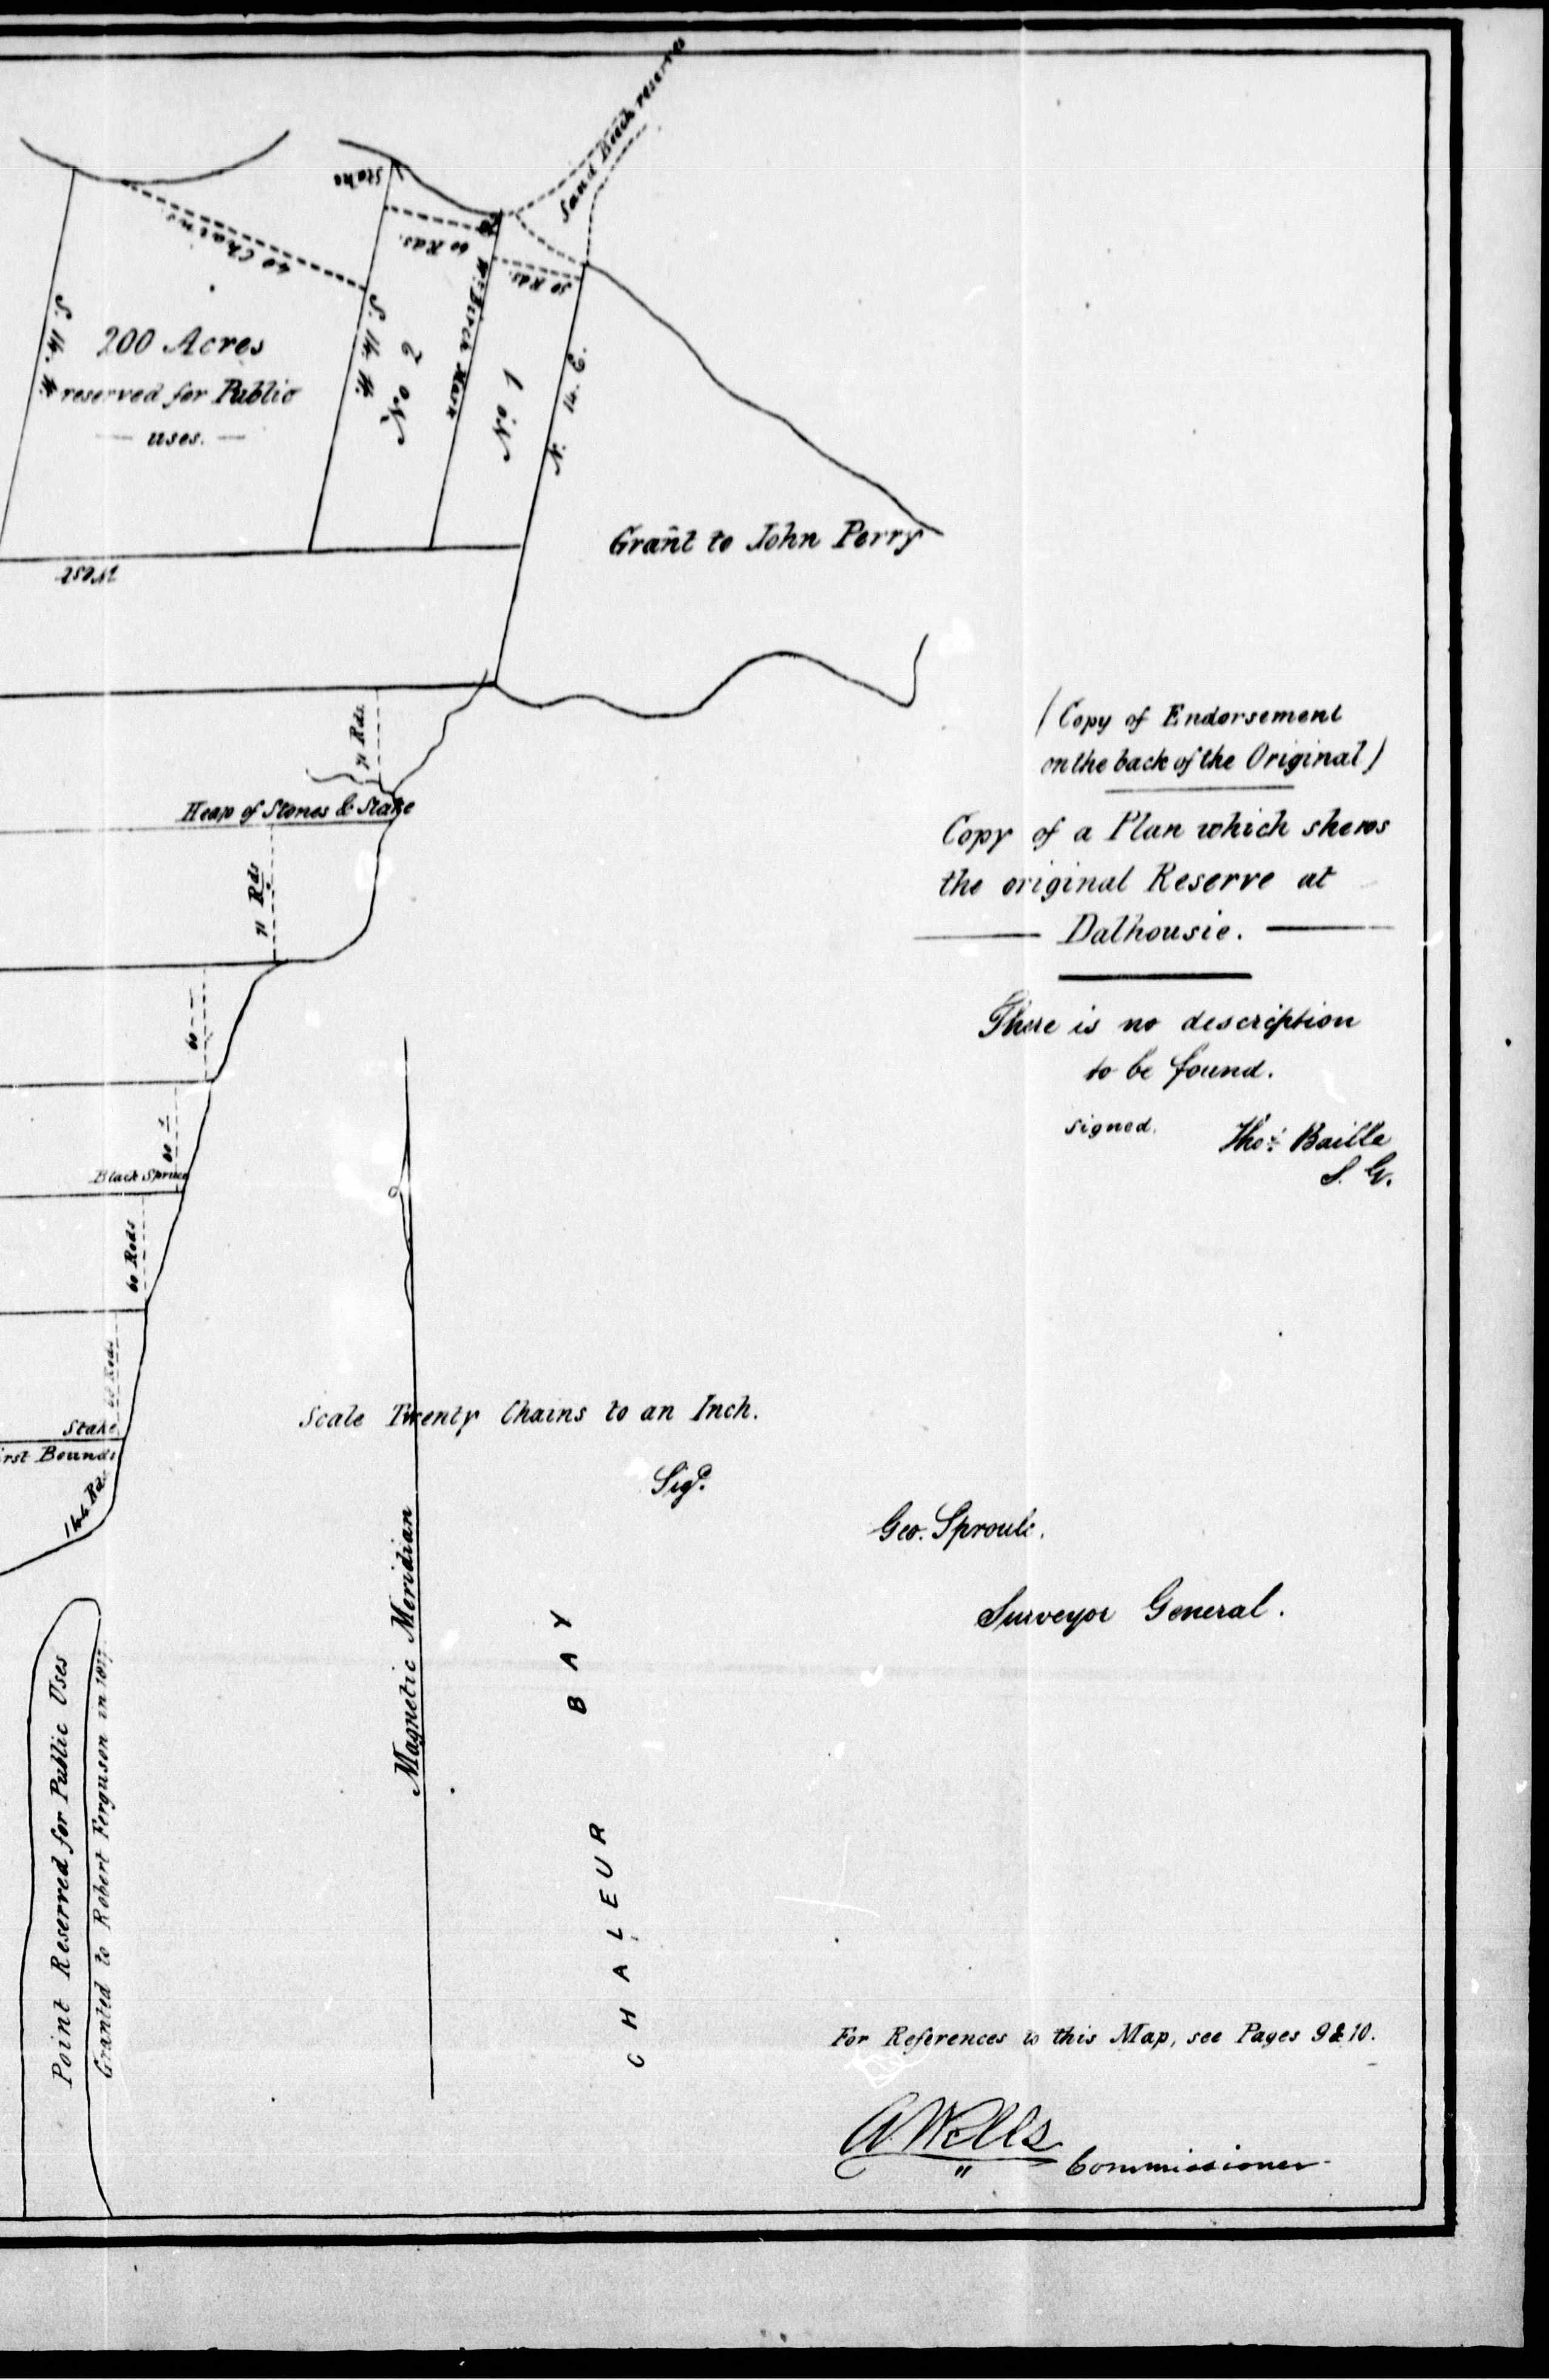 Sand Beach reserve
Stake
60 Rds.
50 Rds.
40 Chains
S. 14. W.
200 Acres
reserved for Public
— uses. —
S. 14. W.
No 2
Wt. Birch Mark
No 1
N. 14. E.
Grant to John Perry
West
71 Rds.
Heap of Stones & Stake
71 Rds
60 —
60 —
Black Spruce
60 Rods
60 Rods
Stake
irst Bounds
144 Rds.
(Copy of Endorsement
on the back of the Original)
Copy of a Plan which shews
the original Reserve at
— Dalhousie. —
There is no description
to be found.
signed. Thos. Baille
S. G.
Scale Twenty Chains to an Inch.
Sigd.
Geo. Sproule.
Surveyor General.
Magnetic Meridian
CHALEUR BAY
Point Reserved for Public Uses
Granted to Robert Ferguson in
For References to this Map, see Pages 9 & 10.
A Wells
" Commissioner